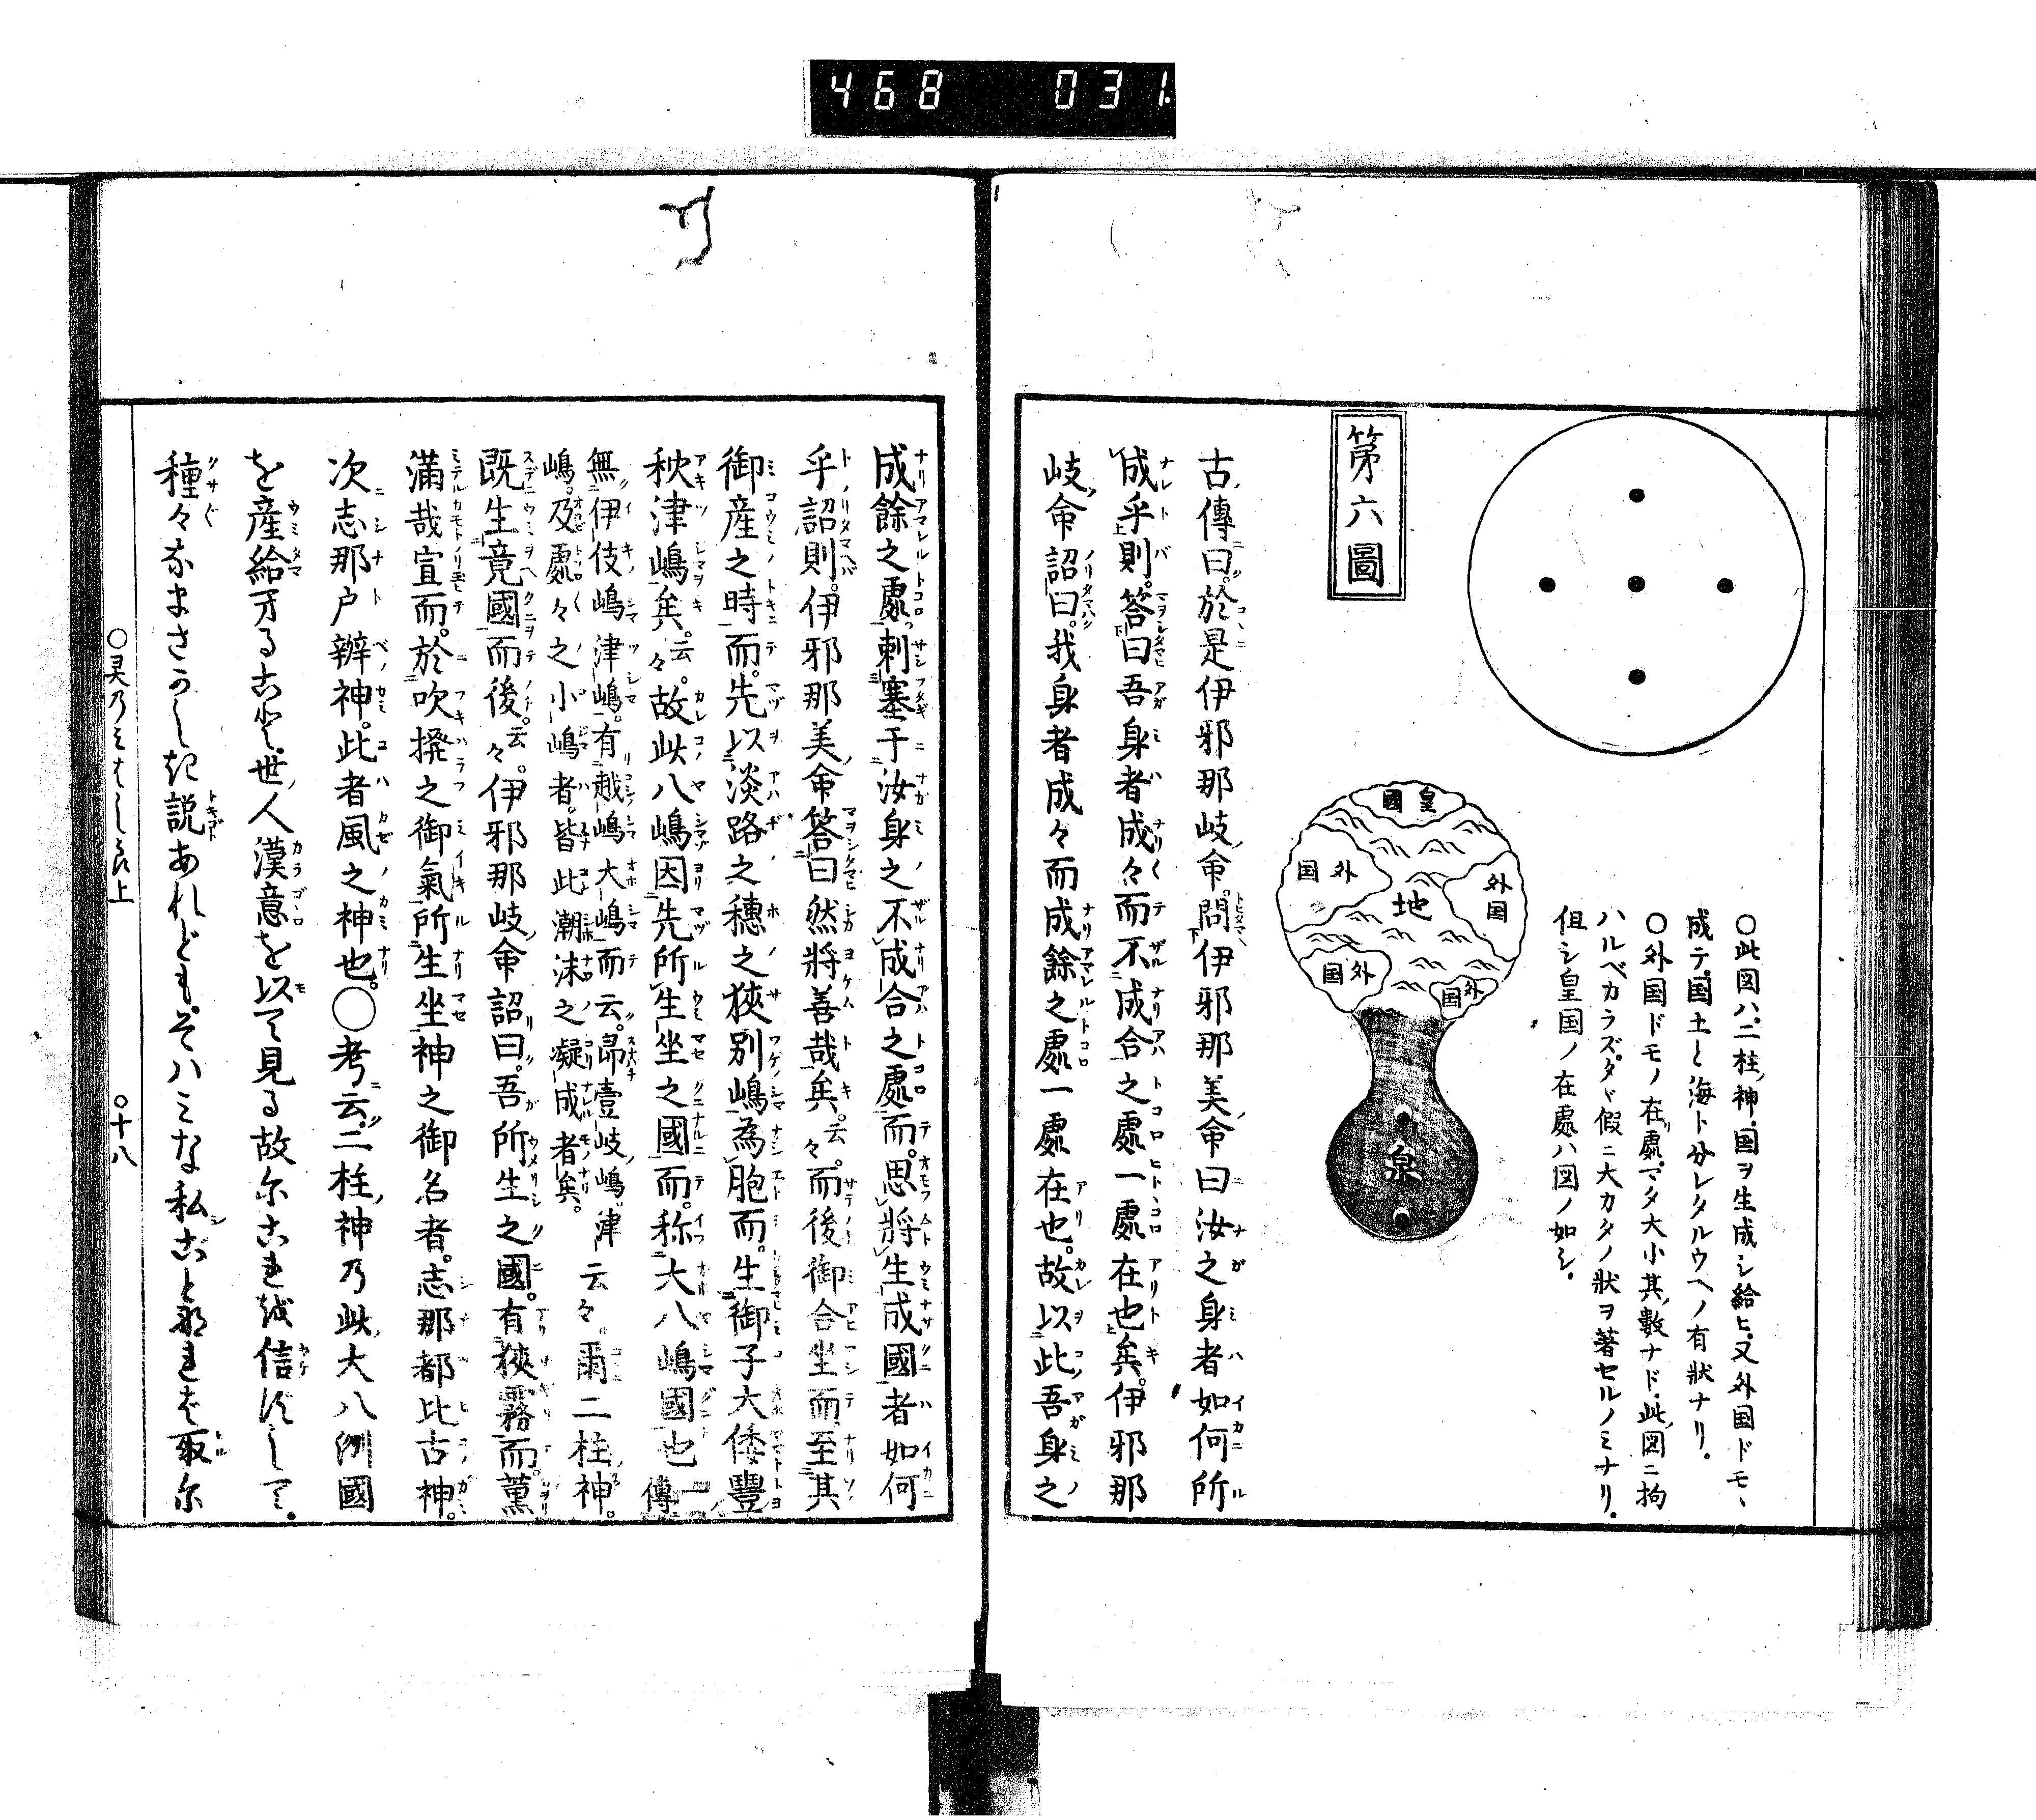 468 031
○此図ハ、二柱ノ神、国ヲ生成シ給ヒ、又外国ドモヽ
成テ、国土と海ト分レタルウヘノ有状ナリ、
○外国ドモノ在処、マタ大小其ノ数ナド、此ノ図ニ拘
ハルベカラズ、タヾ仮ニ大カタノ状ヲ著セルノミナリ、
但シ皇国ノ在処ハ図ノ如シ、
第六圖
皇國
外国
外国
地
外国
外国
泉
古傳曰。於是伊邪那岐命。問伊邪那美命曰汝之身者如何所
成乎則。答曰吾身者成々而不成合之處一處在也矣。伊邪那
岐命詔曰。我身者成々而成餘之處一處在也。故以此吾身之
成餘之處。刺塞于汝身之不成合之處而。思將生成國者如何
乎詔則。伊邪那美命答曰然將善哉矣。云々。而後御合坐而至其
御産之時而。先以淡路之穗之狹別嶋為胞而。生御子大倭豐
秋津嶋矣。云々。故此八嶋因先所生坐之國而。称大八嶋國也 一傳
無伊伎嶋津嶋。有越嶋大嶋而云。昂壹岐嶋津
嶋。及處々之小嶋者。皆此潮沫之凝成者矣。
云々。爾二柱神。
既生竟國而後。云々。伊邪那岐命詔曰。吾所生之國。有狹霧而薫
滿哉宣而。於吹撥之御氣所生坐神之御名者。志那都比古神。
次志那戸辨神。此者風之神也。◯考云。二柱ノ神乃此大八洲國
を産給牙る古と。世ノ人漢意を以て見る故尓古ま越信ずして。
種々なまさかしき説あれども。そハみな私古と那ま者取尓
○灵乃みはしら上
○十八